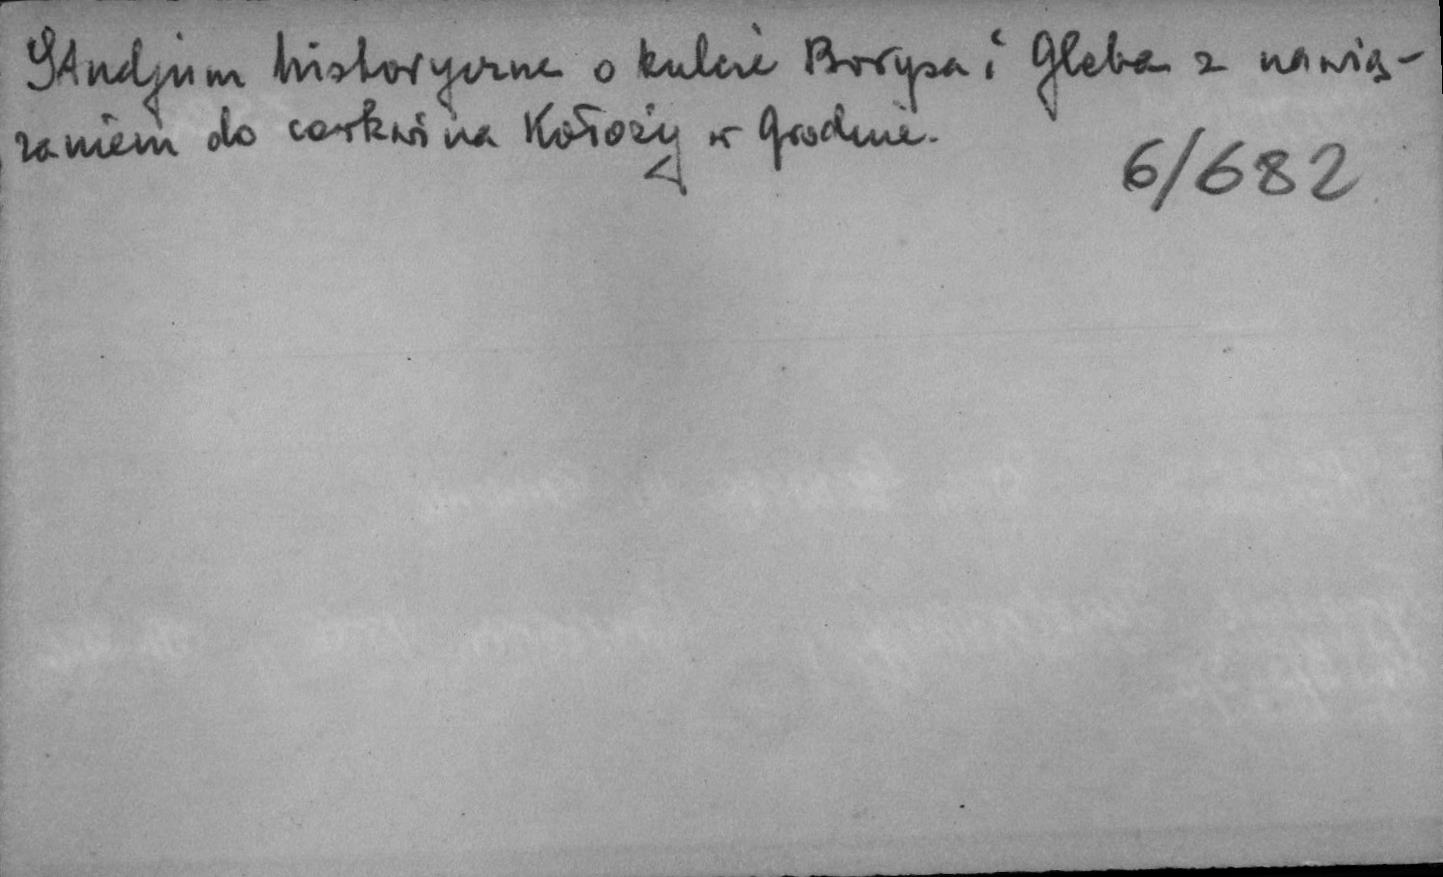 Studjum historyczne o kulcie Borysa i Gleba z nawią-
zaniem do cerkwi na Kołoży w Grodnie.
6/682